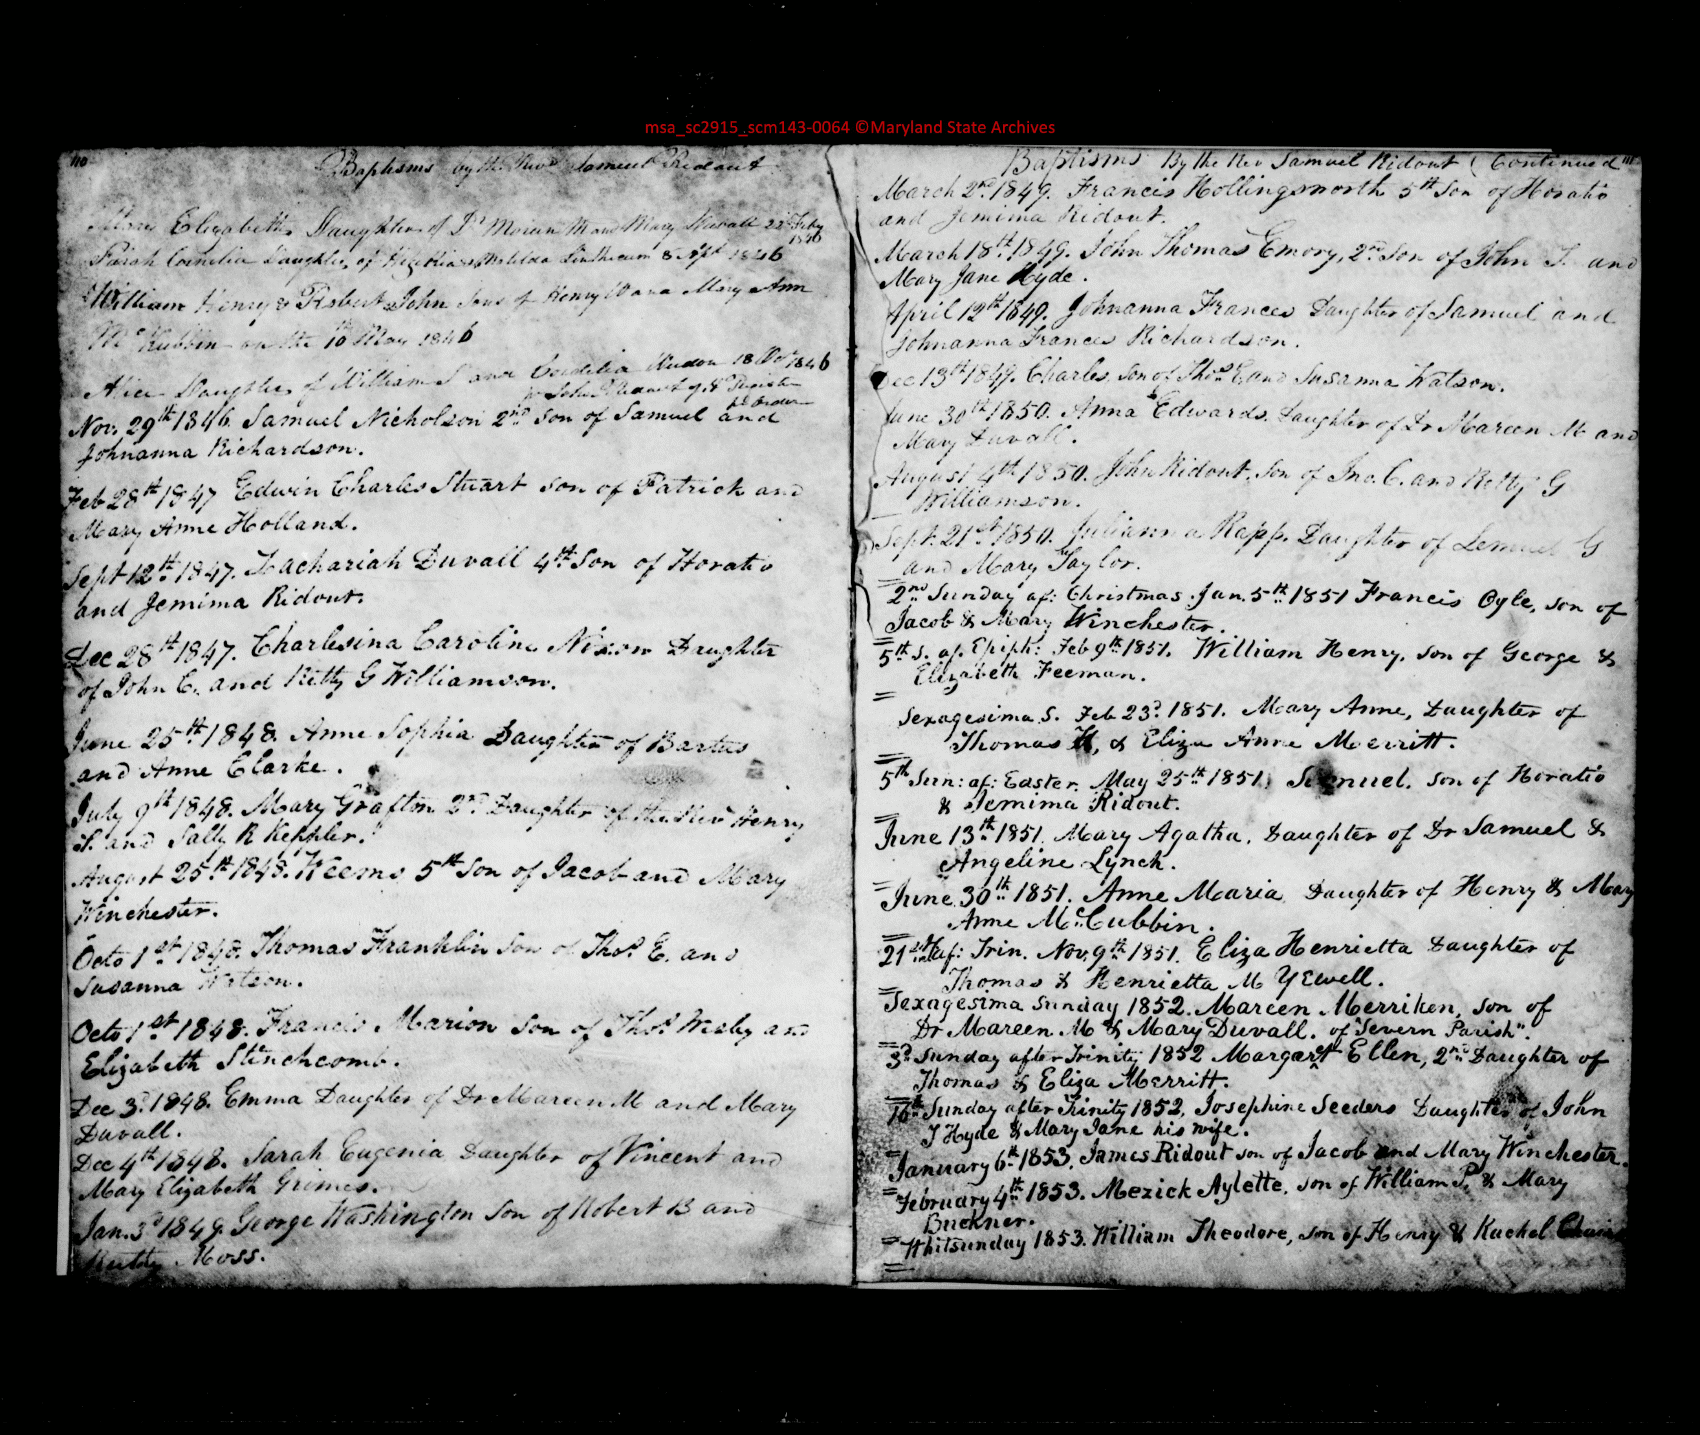 msa_sc2915_scm143-0064 ©Maryland State Archives
110
Baptisms by the Revd Samuel Ridout
Elizabeth Daughter of Dr Mareen M and Mary Duvall 22d Feby
1846
Sarah Cornelia Daughter of Hezekiah & Matilda Linthicum 8 Sept 1846
William Henry & Robert John Sons of Henry and Mary Ann
McCubbin on the 10th May 1846
Alice Daughter of William S and Cordelia 18 Oct 1846
Register
Nov. 29th 1846. Samuel Nicholson 2nd Son of Samuel and
Johnanna Richardson.
Feb 28th 1847 Edwin Charles Stuart son of Patrick and
Mary Anne Holland.
Sept 12th 1847. Zachariah Duvall 4th Son of Horatio
and Jemima Ridout.
Dec 28th 1847. Charlesina Caroline Nixon Daughter
of John C. and Kitty G Williamson.
June 25th 1848. Anne Sophia Daughter of Bartus
and Anne Clarke.
July 9th 1848. Mary Grafton 2nd Daughter of the Revd Henry
S. and Sally R Keppler.
August 25th 1848. Weems 5th Son of Jacob and Mary
Winchester.
Octo 1st 1848. Thomas Franklin Son of Thos. E. and
Susanna Watson.
Octo 1st 1848. Francis Marion Son of Thos Wesley and
Elizabeth Stinchcomb.
Dec 3d. 1848. Emma Daughter of Dr Mareen M and Mary
Duvall.
Dec 4th 1848. Sarah Eugenia Daughter of Vincent and
Mary Elizabeth Grimes.
Jan. 3d 1849. George Washington Son of Robert B and
Moss.
111
Baptisms By the Rev Samuel Ridout (Continued
March 2nd 1849. Francis Hollingsworth 5th Son of Horatio
and Jemima Ridout.
March 18th 1849. John Thomas Emory, 2nd Son of John T. and
Mary Jane Hyde.
April 12th 1849. Johnanna Frances Daughter of Samuel and
Johnanna Frances Richardson.
Dec 13th 1849. Charles, Son of Thos E and Susanna Watson.
June 30th 1850. Anna Edwards. Daughter of Dr Mareen M and
Mary Duvall.
August 4th 1850. John Ridout, Son of Jno. C. and Kitty G
Williamson.
Sept. 21st 1850. Julianna Rapp. Daughter of Lemuel G
and Mary Taylor.
2nd Sunday af: Christmas. Jan. 5th 1851 Francis Ogle, son of
Jacob & Mary Winchester.
5th S. af. Epiph: Feb 9th 1851. William Henry, son of George &
Elizabeth Feeman.
Sexagesima S. Feb 23d. 1851. Mary Anne, Daughter of
Thomas H, & Eliza Anne Merritt.
5th Sun: af: Easter, May 25th 1851, Samuel, son of Horatio
& Jemima Ridout.
June 13th 1851. Mary Agatha, Daughter of Dr Samuel &
Angeline Lynch.
June 30th 1851. Anne Maria Daughter of Henry & Mary
Anne McCubbin.
21st af: Trin. Nov. 9th 1851. Eliza Henrietta Daughter of
Thomas & Henrietta M Yewell.
Sexagesima Sunday 1852. Mareen Merriken, son of
Dr Mareen M & Mary Duvall. of "Severn Parish".
3d Sunday after Trinity 1852 Margaret Ellen, 2nd Daughter of
Thomas & Eliza Merritt.
16th Sunday after Trinity 1852, Josephine Seeders Daughter of John
T Hyde & Mary Jane his wife.
January 6th 1853. James Ridout son of Jacob and Mary Winchester.
February 4th 1853. Mezick Aylette, son of William P. & Mary
Buckner.
Whitsunday 1853. William Theodore, son of Henry & Rachel